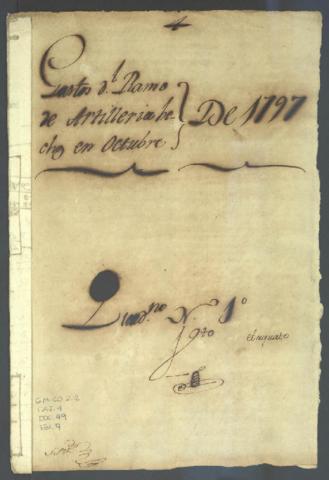 4
Gastos d.l Ramo
de Artilleria he
chos en Octubre
De 1797
Quad.no N.o 1o
GM-CO 2.2
CAJ. 4
DOC. 49
FOL. 9